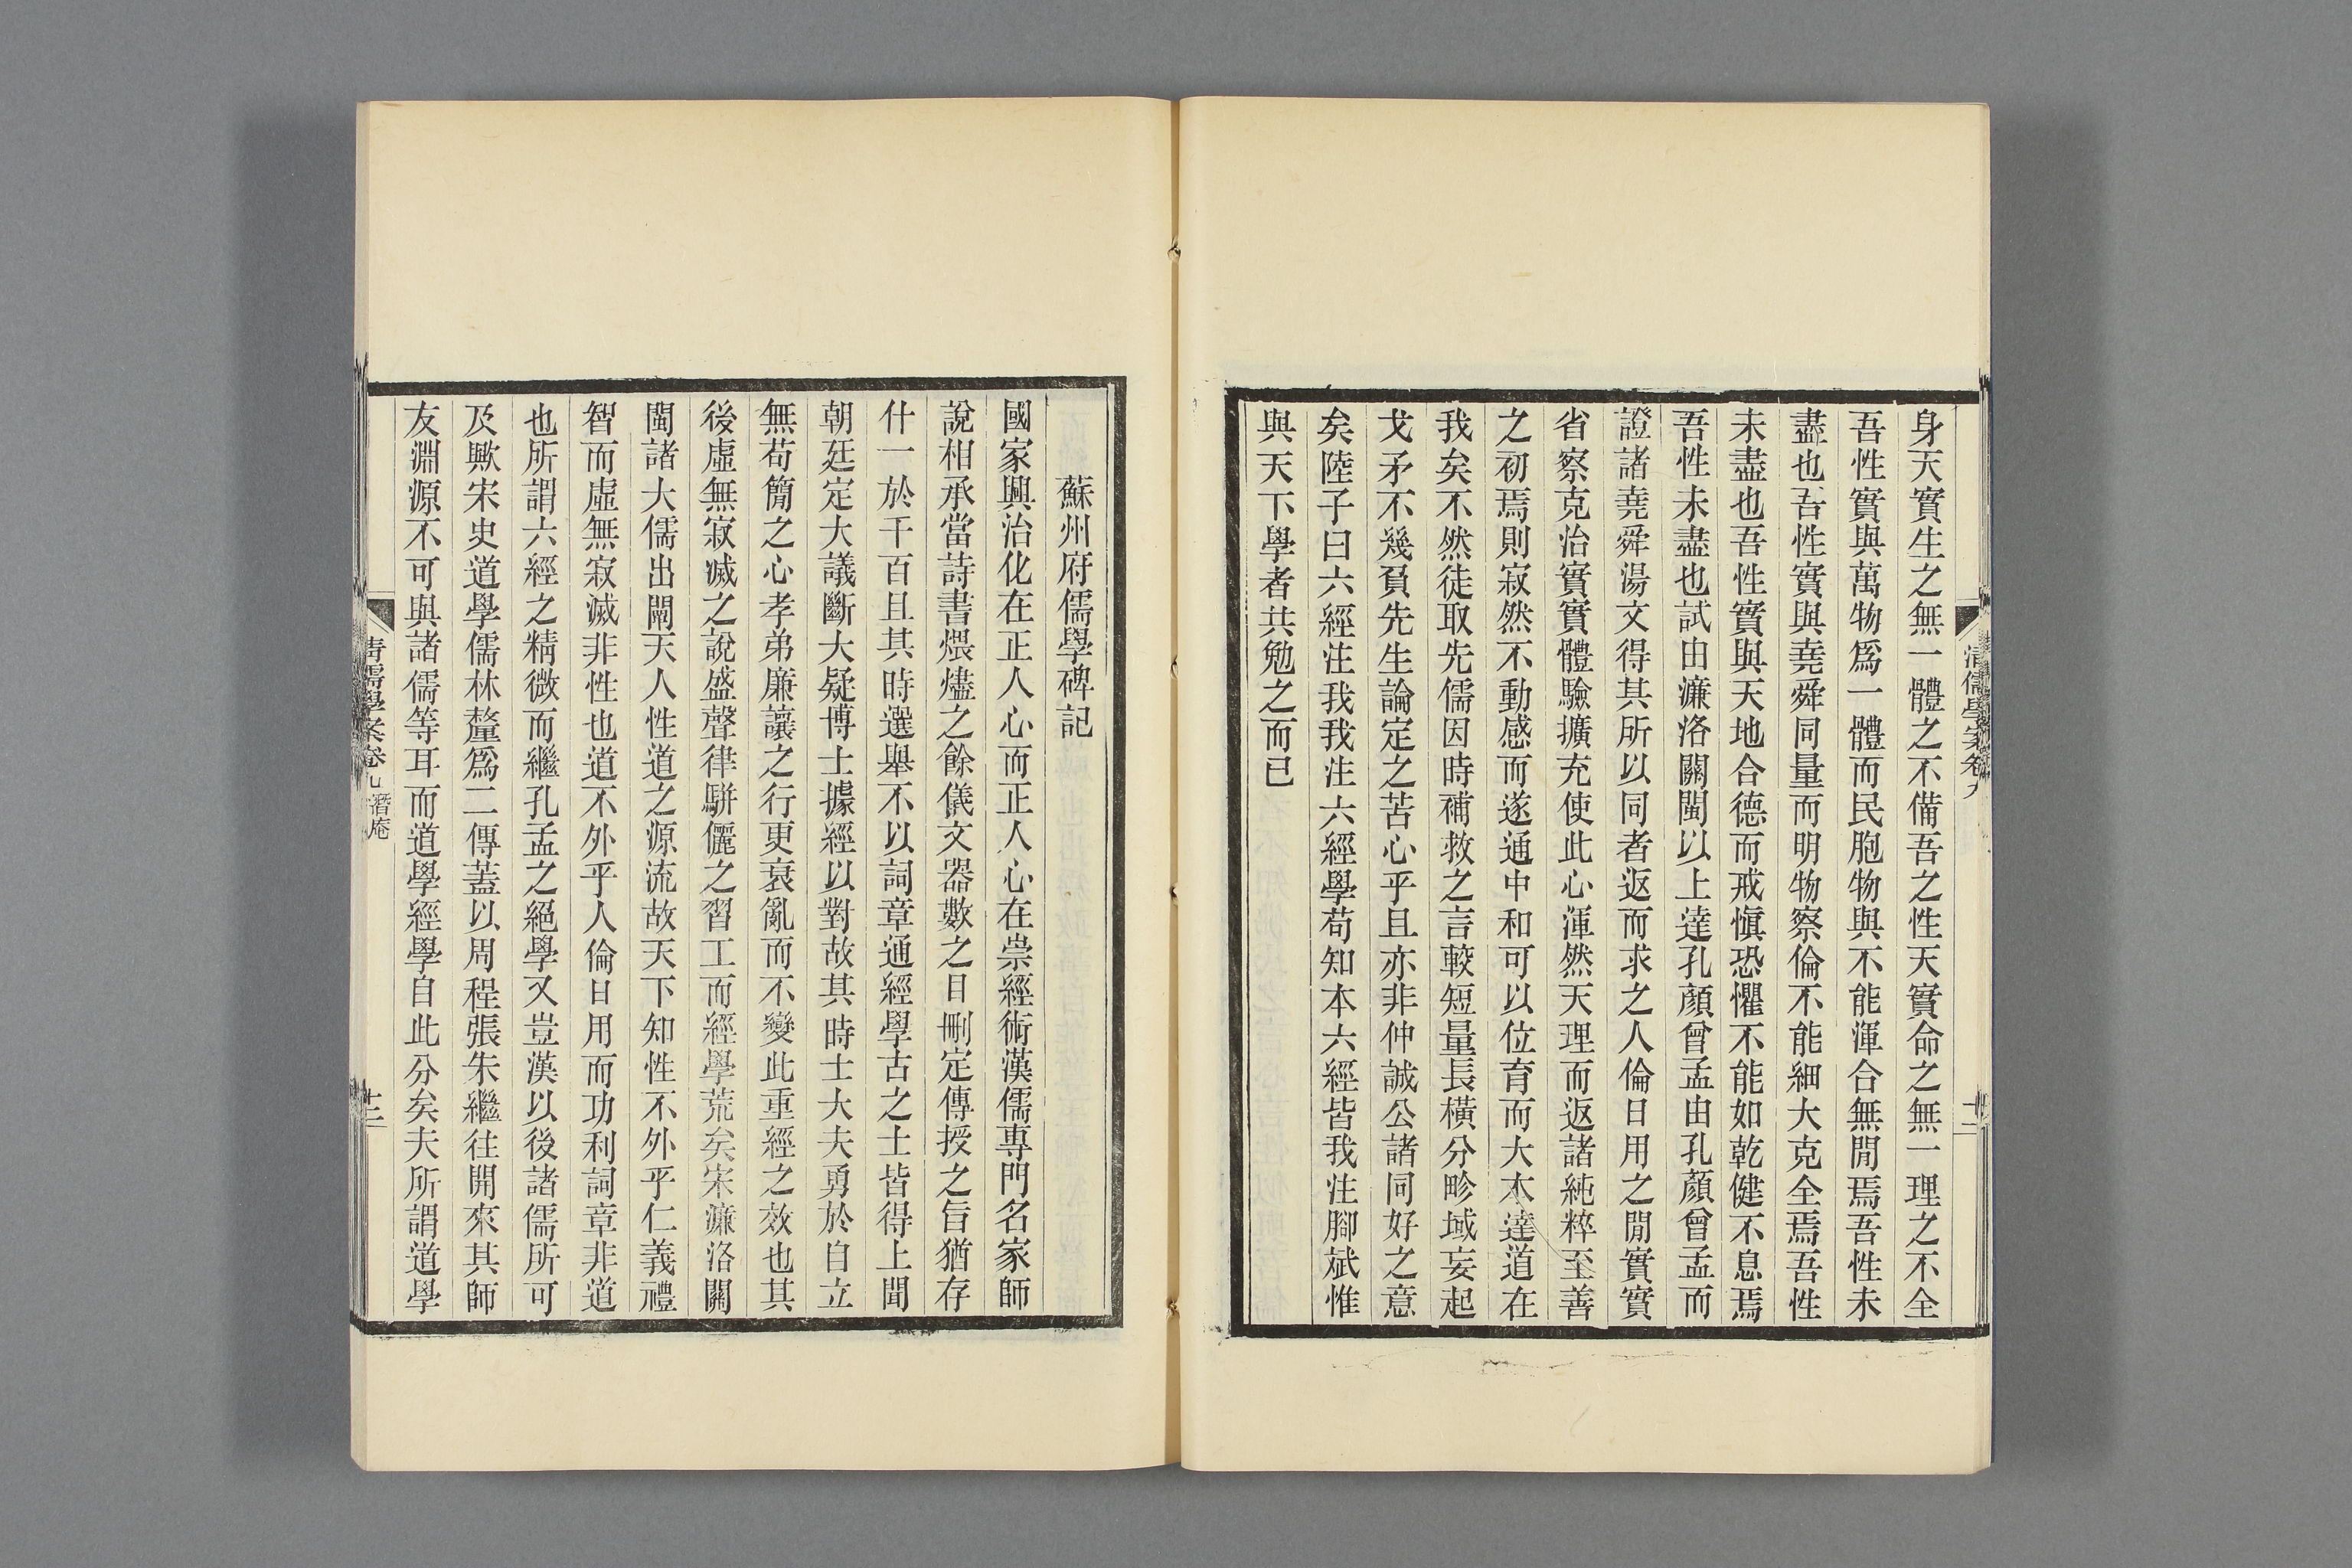 身天實生之無一體之不備吾之性天實命之無一理之不全
吾性實與萬物爲一體而民胞物與不能渾合無閒焉吾性未
盡也吾性實與堯舜同量而明物察倫不能細大克全焉吾性
未盡也吾性實與天地合德而戒愼恐懼不能如乾健不息焉
吾性未盡也試由濂洛關閩以上達孔顏曾孟由孔顏曾孟而
證諸堯舜湯文得其所以同者返而求之人倫日用之閒實實
省察克治實實體驗擴充使此心渾然天理而返諸純粹至善
之初焉則寂然不動感而遂通中和可以位育而大本達道在
我矣不然徒取先儒因時補救之言較短量長橫分畛域妄起
戈矛不幾負先生論定之苦心乎且亦非仲誠公諸同好之意
矣陸子曰六經注我我注六經學苟知本六經皆我注腳斌惟
與天下學者共勉之而已
清儒學案卷九
十二
蘇州府儒學碑記
國家興治化在正人心而正人心在崇經術漢儒專門名家師
說相承當詩書煨燼之餘儀文器數之目刪定傳授之旨猶存
什一於千百且其時選舉不以詞章通經學古之士皆得上聞
朝廷定大議斷大疑博士據經以對故其時士大夫勇於自立
無苟簡之心孝弟廉讓之行更衰亂而不變此重經之效也其
後虛無寂滅之說盛聲律駢儷之習工而經學荒矣宋濂洛關
閩諸大儒出闡天人性道之源流故天下知性不外乎仁義禮
智而虛無寂滅非性也道不外乎人倫日用而功利詞章非道
也所謂六經之精微而繼孔孟之絕學又豈漢以後諸儒所可
及歟宋史道學儒林釐爲二傳蓋以周程張朱繼往開來其師
友淵源不可與諸儒等耳而道學經學自此分矣夫所謂道學
清儒學案卷九 潛庵
十二